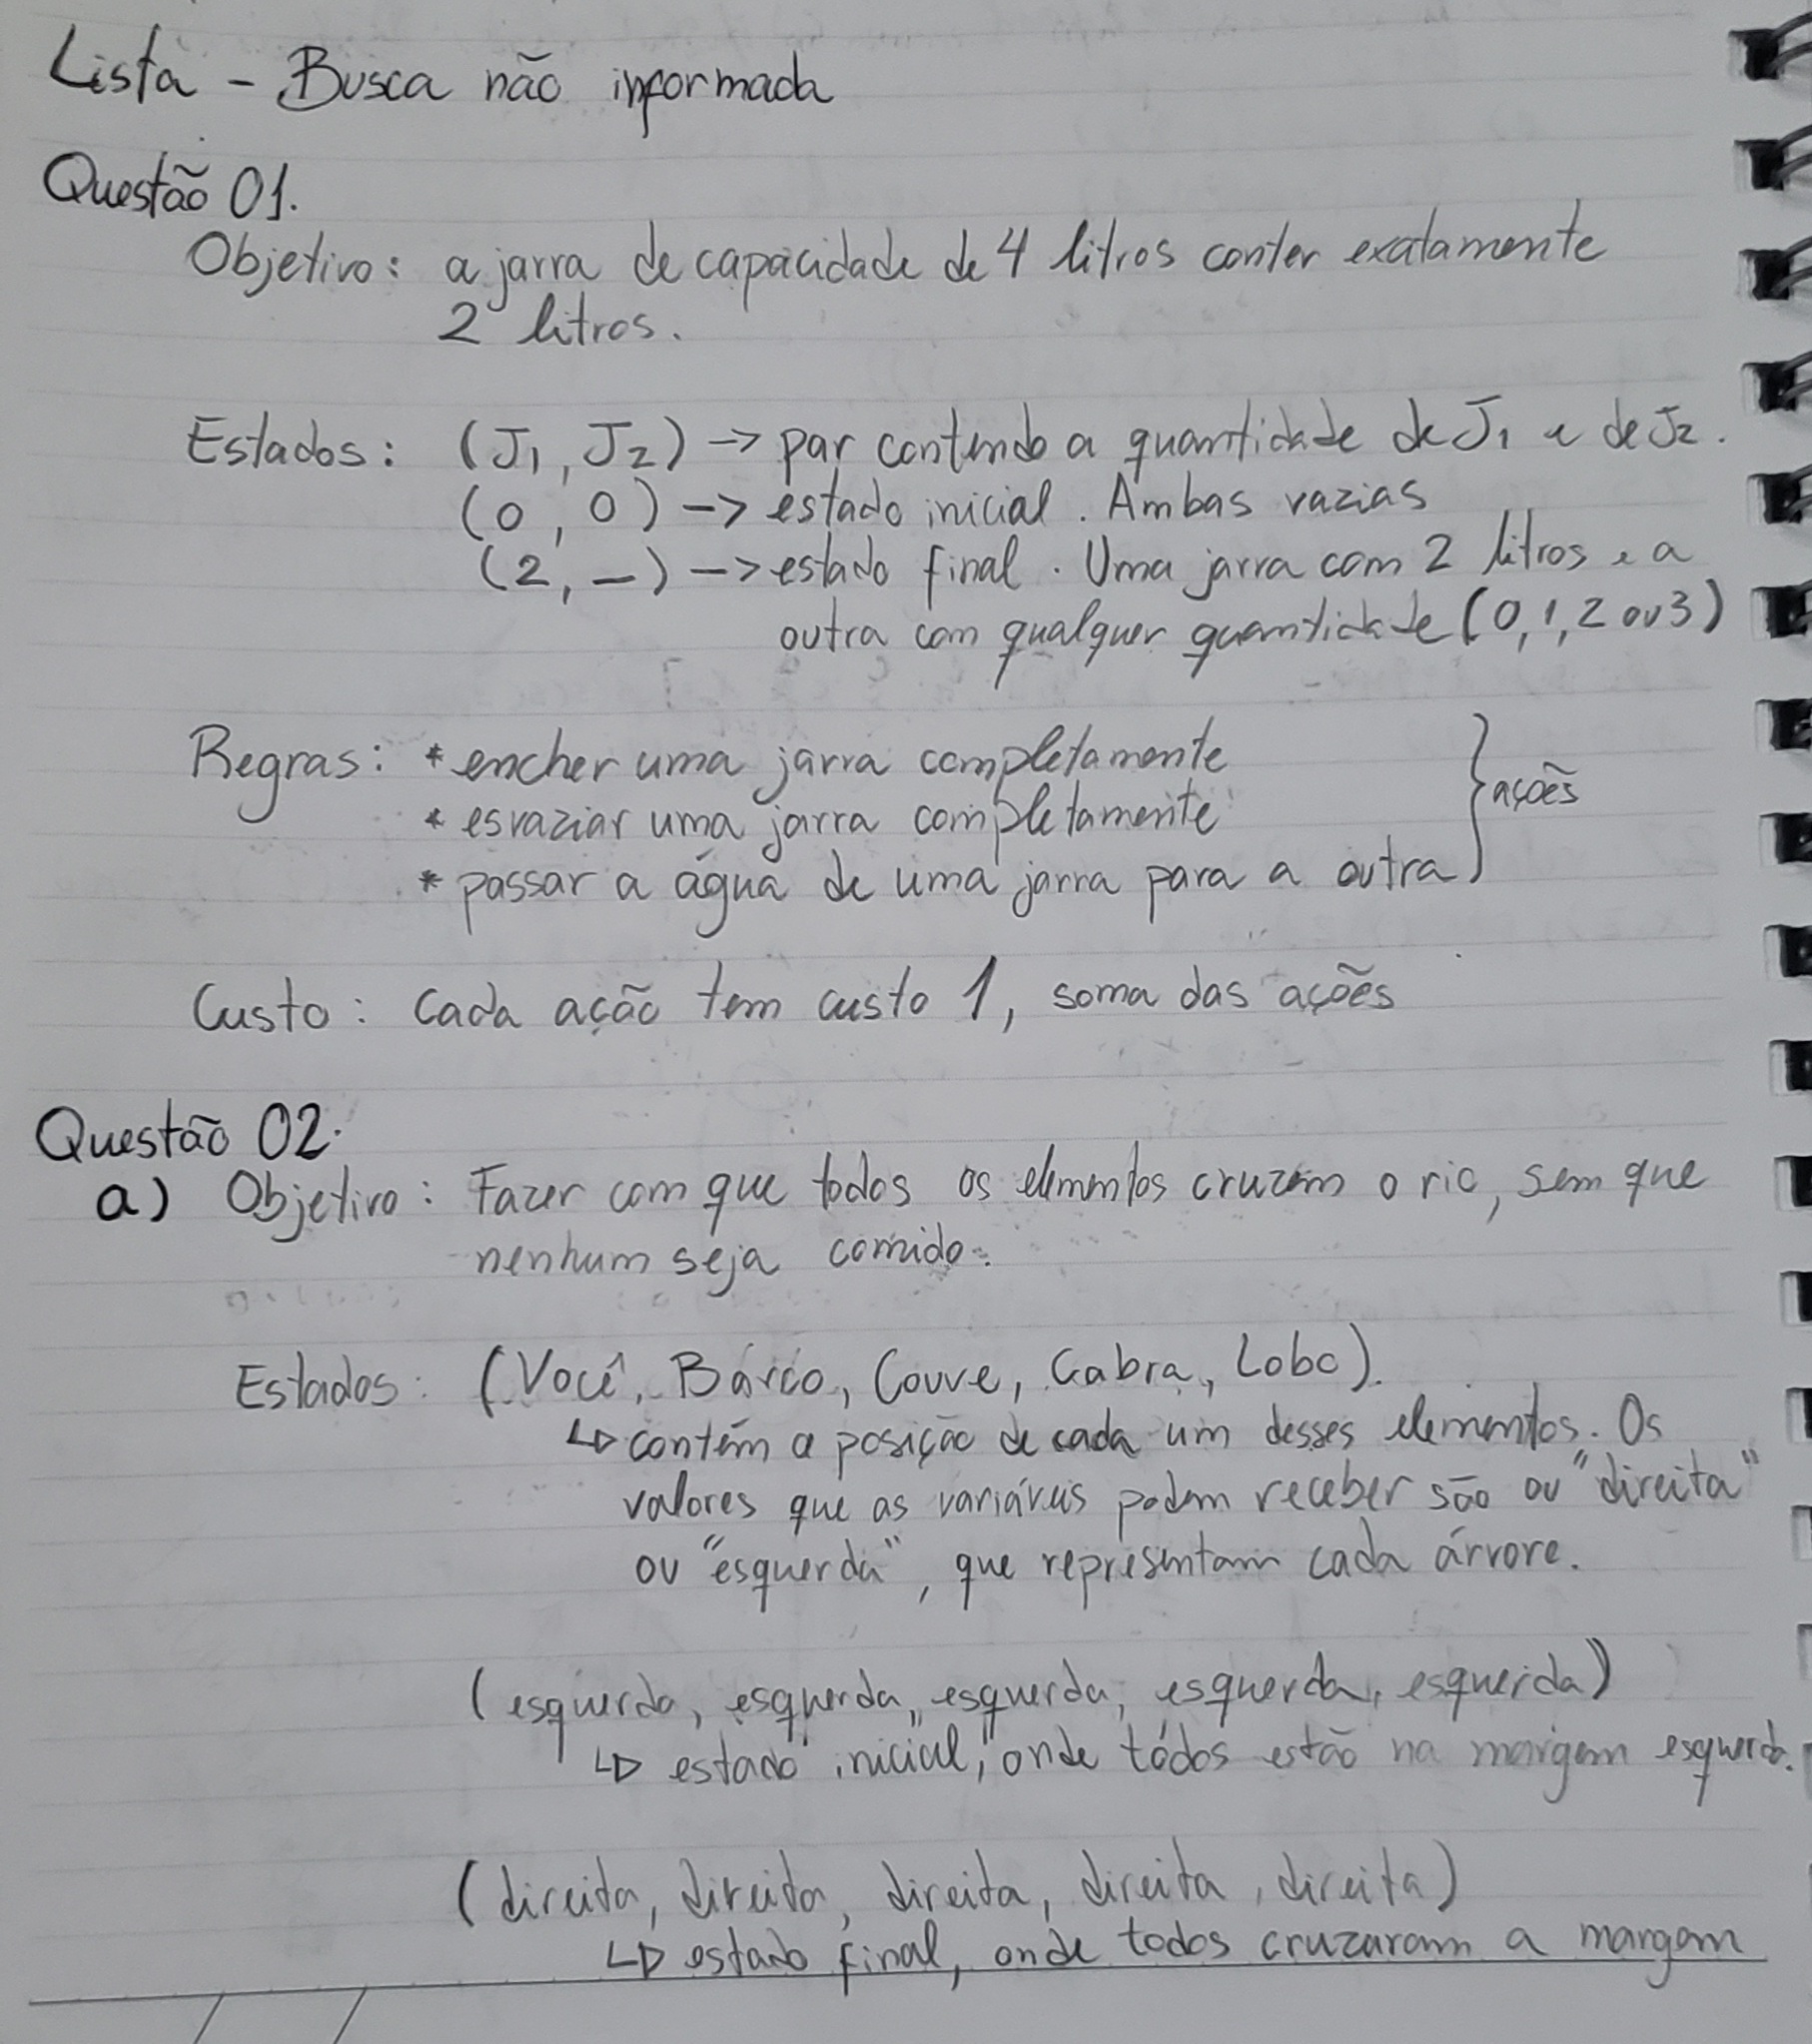 Lista - Busca não informada
Questão 01.
Objetivo: a jarra de capacidade de 4 litros conter exatamente
2 litros.
Estados: (J1, J2) -> par contendo a quantidade de J1 e de J2.
(0, 0) -> estado inicial. Ambas vazias
(2, -) -> estado final. Uma jarra com 2 litros e a
outra com qualquer quantidade (0, 1, 2 ou 3)
Regras: * encher uma jarra completamente
* esvaziar uma jarra completamente
* passar a água de uma jarra para a outra
} ações
Custo: Cada ação tem custo 1, soma das ações
Questão 02.
a) Objetivo: Fazer com que todos os elementos cruzem o rio, sem que
nenhum seja comido.
Estados: (Você, Barco, Couve, Cabra, Lobo).
↳ contém a posição de cada um desses elementos. Os
valores que as variáveis podem receber são ou "direita"
ou "esquerda", que representam cada árvore.
(esquerda, esquerda, esquerda, esquerda, esquerda)
↳ estado inicial, onde todos estão na margem esquerda.
(direita, direita, direita, direita, direita)
↳ estado final, onde todos cruzaram a margem